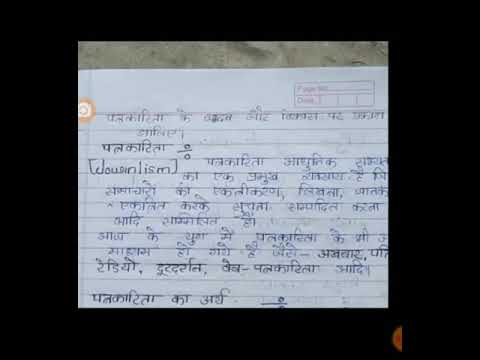 Page No.
Date
पत्रकारिता के उदभव और विकास पर प्रकाश
डालिए।
पत्रकारिता ÷
[Jouinlism] पत्रकारिता आधुनिक सभ्यता
का एक प्रमुख व्यवसाय है
समाचारों का एकत्रीकरण, लिखना,
एकत्रित करके सूचना सम्पादित करना
आदि सम्मिलित है।
आज के युग में पत्रकारिता के भी
माध्यम हो गये है जैसे- अखबार,
रेडियो, दूरदर्शन, वेब-पत्रकारिता आदि।
पत्रकारिता का अर्थ ÷